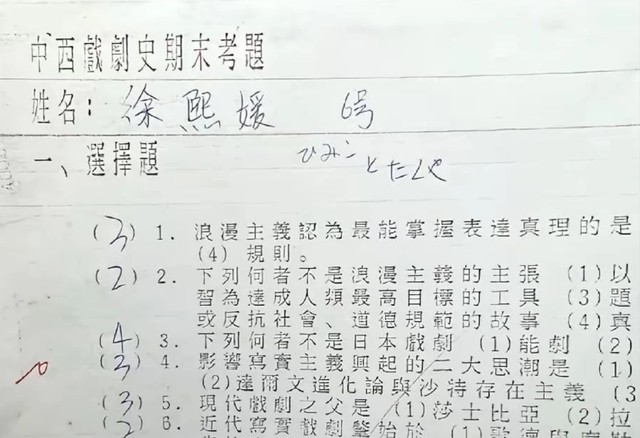 中西戲劇史期末考題
姓名：徐熙媛 6号
一、選擇題 ひみこ とたくや
(3) 1. 浪漫主義認為最能掌握表達真理的是
(4) 規則。
(2) 2. 下列何者不是浪漫主義的主張 (1)以
智為達成人類最高目標的工具 (3)題
或反抗社會、道德規範的故事 (4)真
(4) 3. 下列何者不是日本戲劇 (1)能劇 (2)
(3) 4. 影響寫實主義興起的二大思潮是 (1)
(2)達爾文進化論與沙特存在主義 (3
(3) 5. 現代戲劇之父是 (1)莎士比亞 (2)拉
(2 6. 近代寫實戲劇肇始於 (1)歌德與席勒